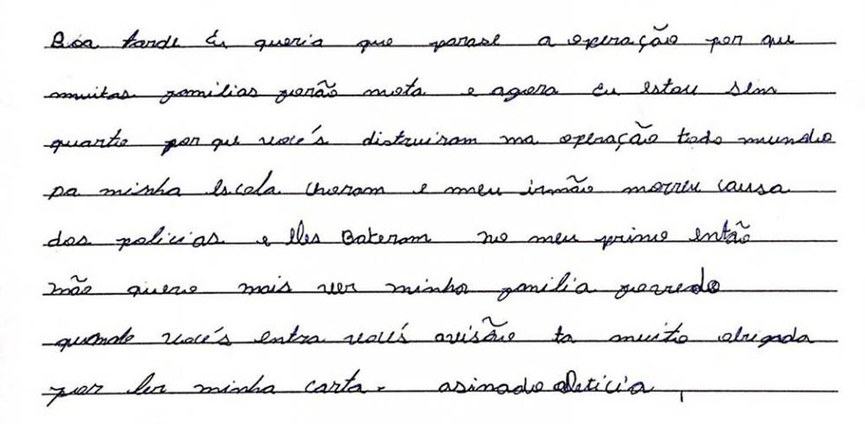 Boa tarde Eu queria que parase a operação por que
muitas familias forão mota e agora Eu estou sem
quarto por que voce's distruiram na operação todo mundo
da minha Escola choram e meu irmão morreu causa
dos policias e Eles Bateram no meu primo então
não quero mais ver minha familia
quando voce's entra voces avisão ta muito obrigada
por ler minha carta. asinado Leticia